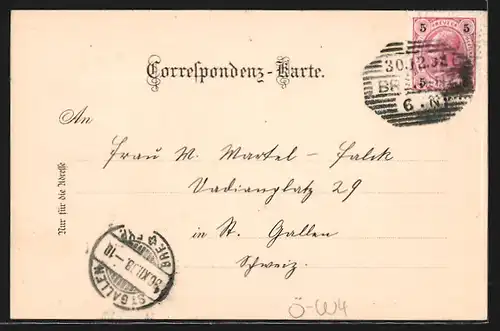 5 5
30.12.98
BRE
6.N
Correspondenz-Karte.
An
Frau W. Wartel-Falck
Vadianplatz 29
in St. Gallen
Schweiz.
Nur für die Adresse
ST. GALLEN
30.XII.98.-10
BRF. EXP.
Ö-W4